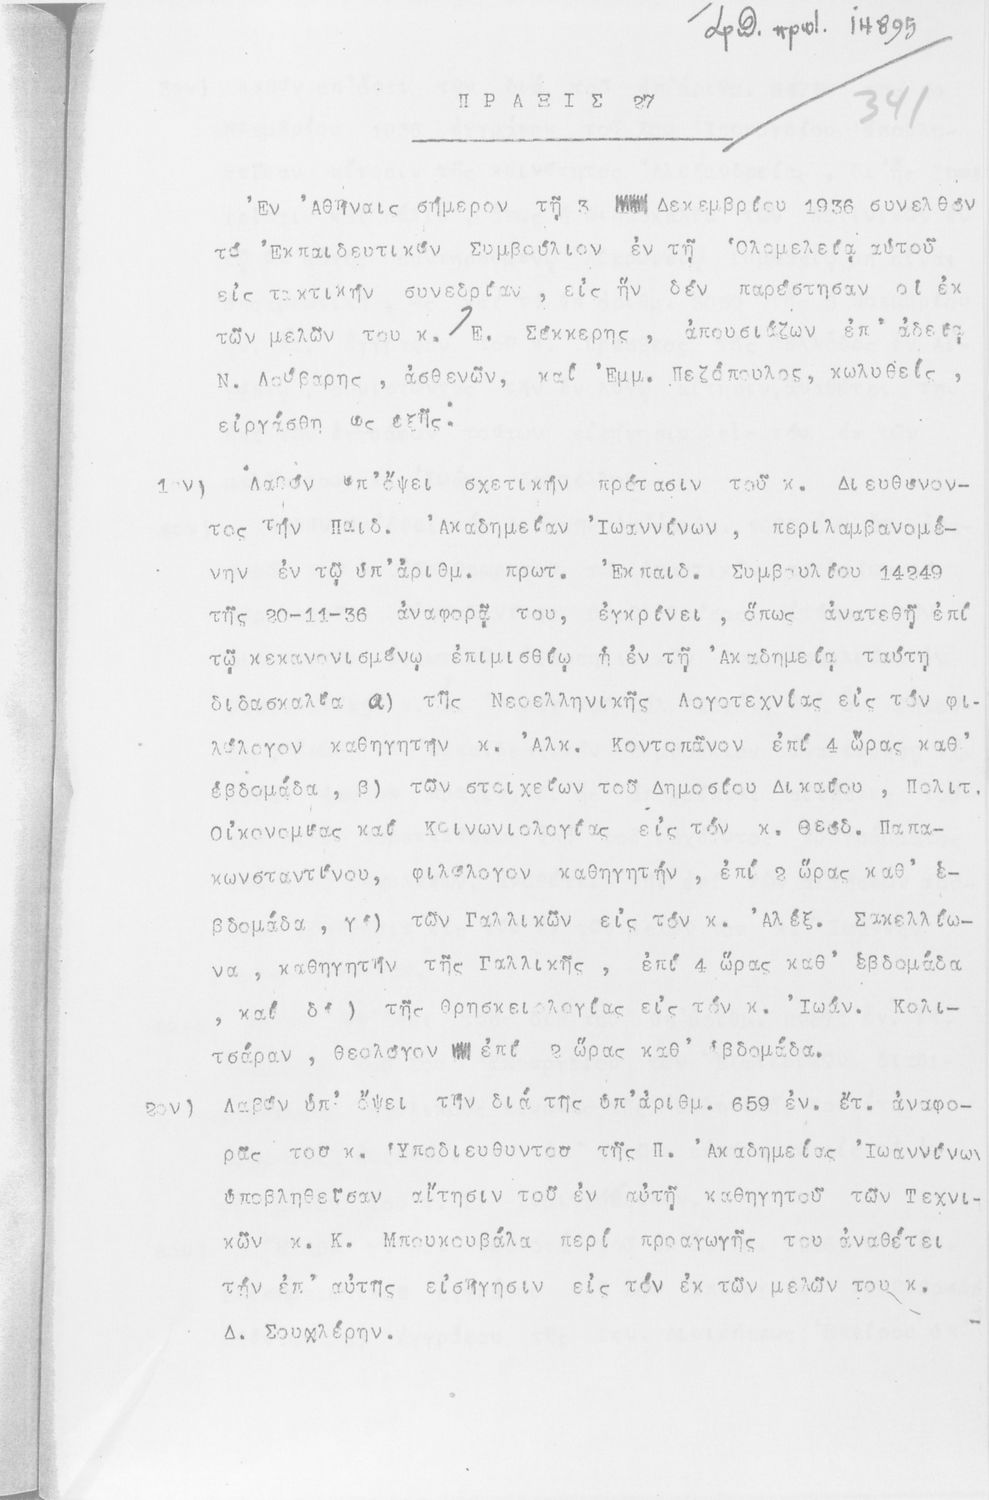 ἀριθ. πρωτ. 14895
341
ΠΡΑΞΙΣ 27
Ἐν Ἀθήναις σήμερον τῇ 3 Δεκεμβρίου 1936 συνελθόν
τό Ἐκπαιδευτικόν Συμβούλιον ἐν τῇ Ὁλομελείᾳ αὐτοῦ
εἰς τακτικήν συνεδρίαν , εἰς ἥν δέν παρέστησαν οἱ ἐκ
τῶν μελῶν του κ. Ε. Σέκκερης , ἀπουσιάζων ἐπ' ἀδείᾳ
Ν. Λούβαρης , ἀσθενῶν, καί Ἐμμ. Πεζόπουλος, κωλυθείς ,
εἰργάσθη ὡς ἑξῆς:
1ον) Λαβόν ὑπ' ὄψει σχετικήν πρότασιν τοῦ κ. Διευθύνον-
τος τήν Παιδ. Ἀκαδημείαν Ἰωαννίνων , περιλαμβανομέ-
νην ἐν τῷ ὑπ' ἀριθμ. πρωτ. Ἐκπαιδ. Συμβουλίου 14249
τῆς 20-11-36 ἀναφορᾷ του, ἐγκρίνει , ὅπως ἀνατεθῇ ἐπί
τῷ κεκανονισμένῳ ἐπιμισθίῳ ἡ ἐν τῇ Ἀκαδημείᾳ ταύτῃ
διδασκαλία α) τῆς Νεοελληνικῆς Λογοτεχνίας εἰς τόν φι-
λόλογον καθηγητήν κ. Ἀλκ. Κοντοπᾶνον ἐπί 4 ὥρας καθ'
ἑβδομάδα , β) τῶν στοιχείων τοῦ Δημοσίου Δικαίου , Πολιτ.
Οἰκονομίας καί Κοινωνιολογίας εἰς τόν κ. Θεόδ. Παπα-
κωνσταντίνου, φιλόλογον καθηγητήν , ἐπί 2 ὥρας καθ' ἑ-
βδομάδα , γ') τῶν Γαλλικῶν εἰς τόν κ. Ἀλέξ. Σακελλίω-
να , καθηγητήν τῆς Γαλλικῆς , ἐπί 4 ὥρας καθ' ἑβδομάδα
, καί δ' ) τῆς θρησκειολογίας εἰς τόν κ. Ἰωάν. Κολι-
τσάραν , θεολόγον ἐπί 2 ὥρας καθ' ἑβδομάδα.
2ον) Λαβόν ὑπ' ὄψει τήν διά τῆς ὑπ' ἀριθμ. 659 ἐν. ἔτ. ἀναφο-
ρᾶς τοῦ κ. Ὑποδιευθυντοῦ τῆς Π. Ἀκαδημείας Ἰωαννίνων
ὑποβληθεῖσαν αἴτησιν τοῦ ἐν αὐτῇ καθηγητοῦ τῶν Τεχνι-
κῶν κ. Κ. Μπουκουβάλα περί προαγωγῆς του ἀναθέτει
τήν ἐπ' αὐτῆς εἰσήγησιν εἰς τόν ἐκ τῶν μελῶν του κ.
Δ. Σουχλέρην.